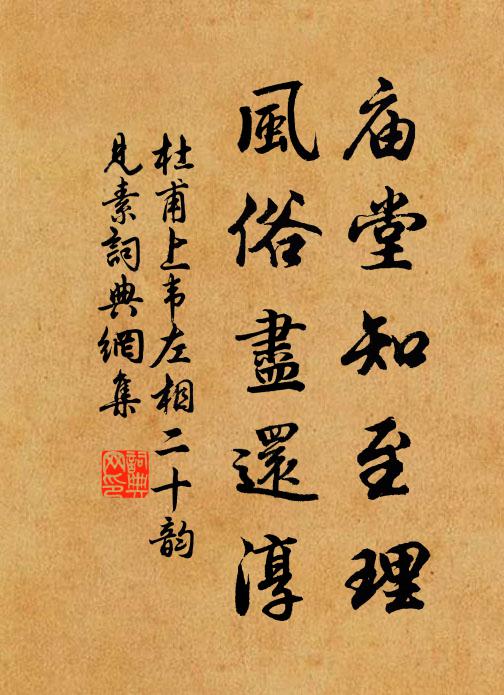 庙堂知至理
風俗盡還淳
杜甫上韦左相二十韵
見素詞典網集
詞典
网印